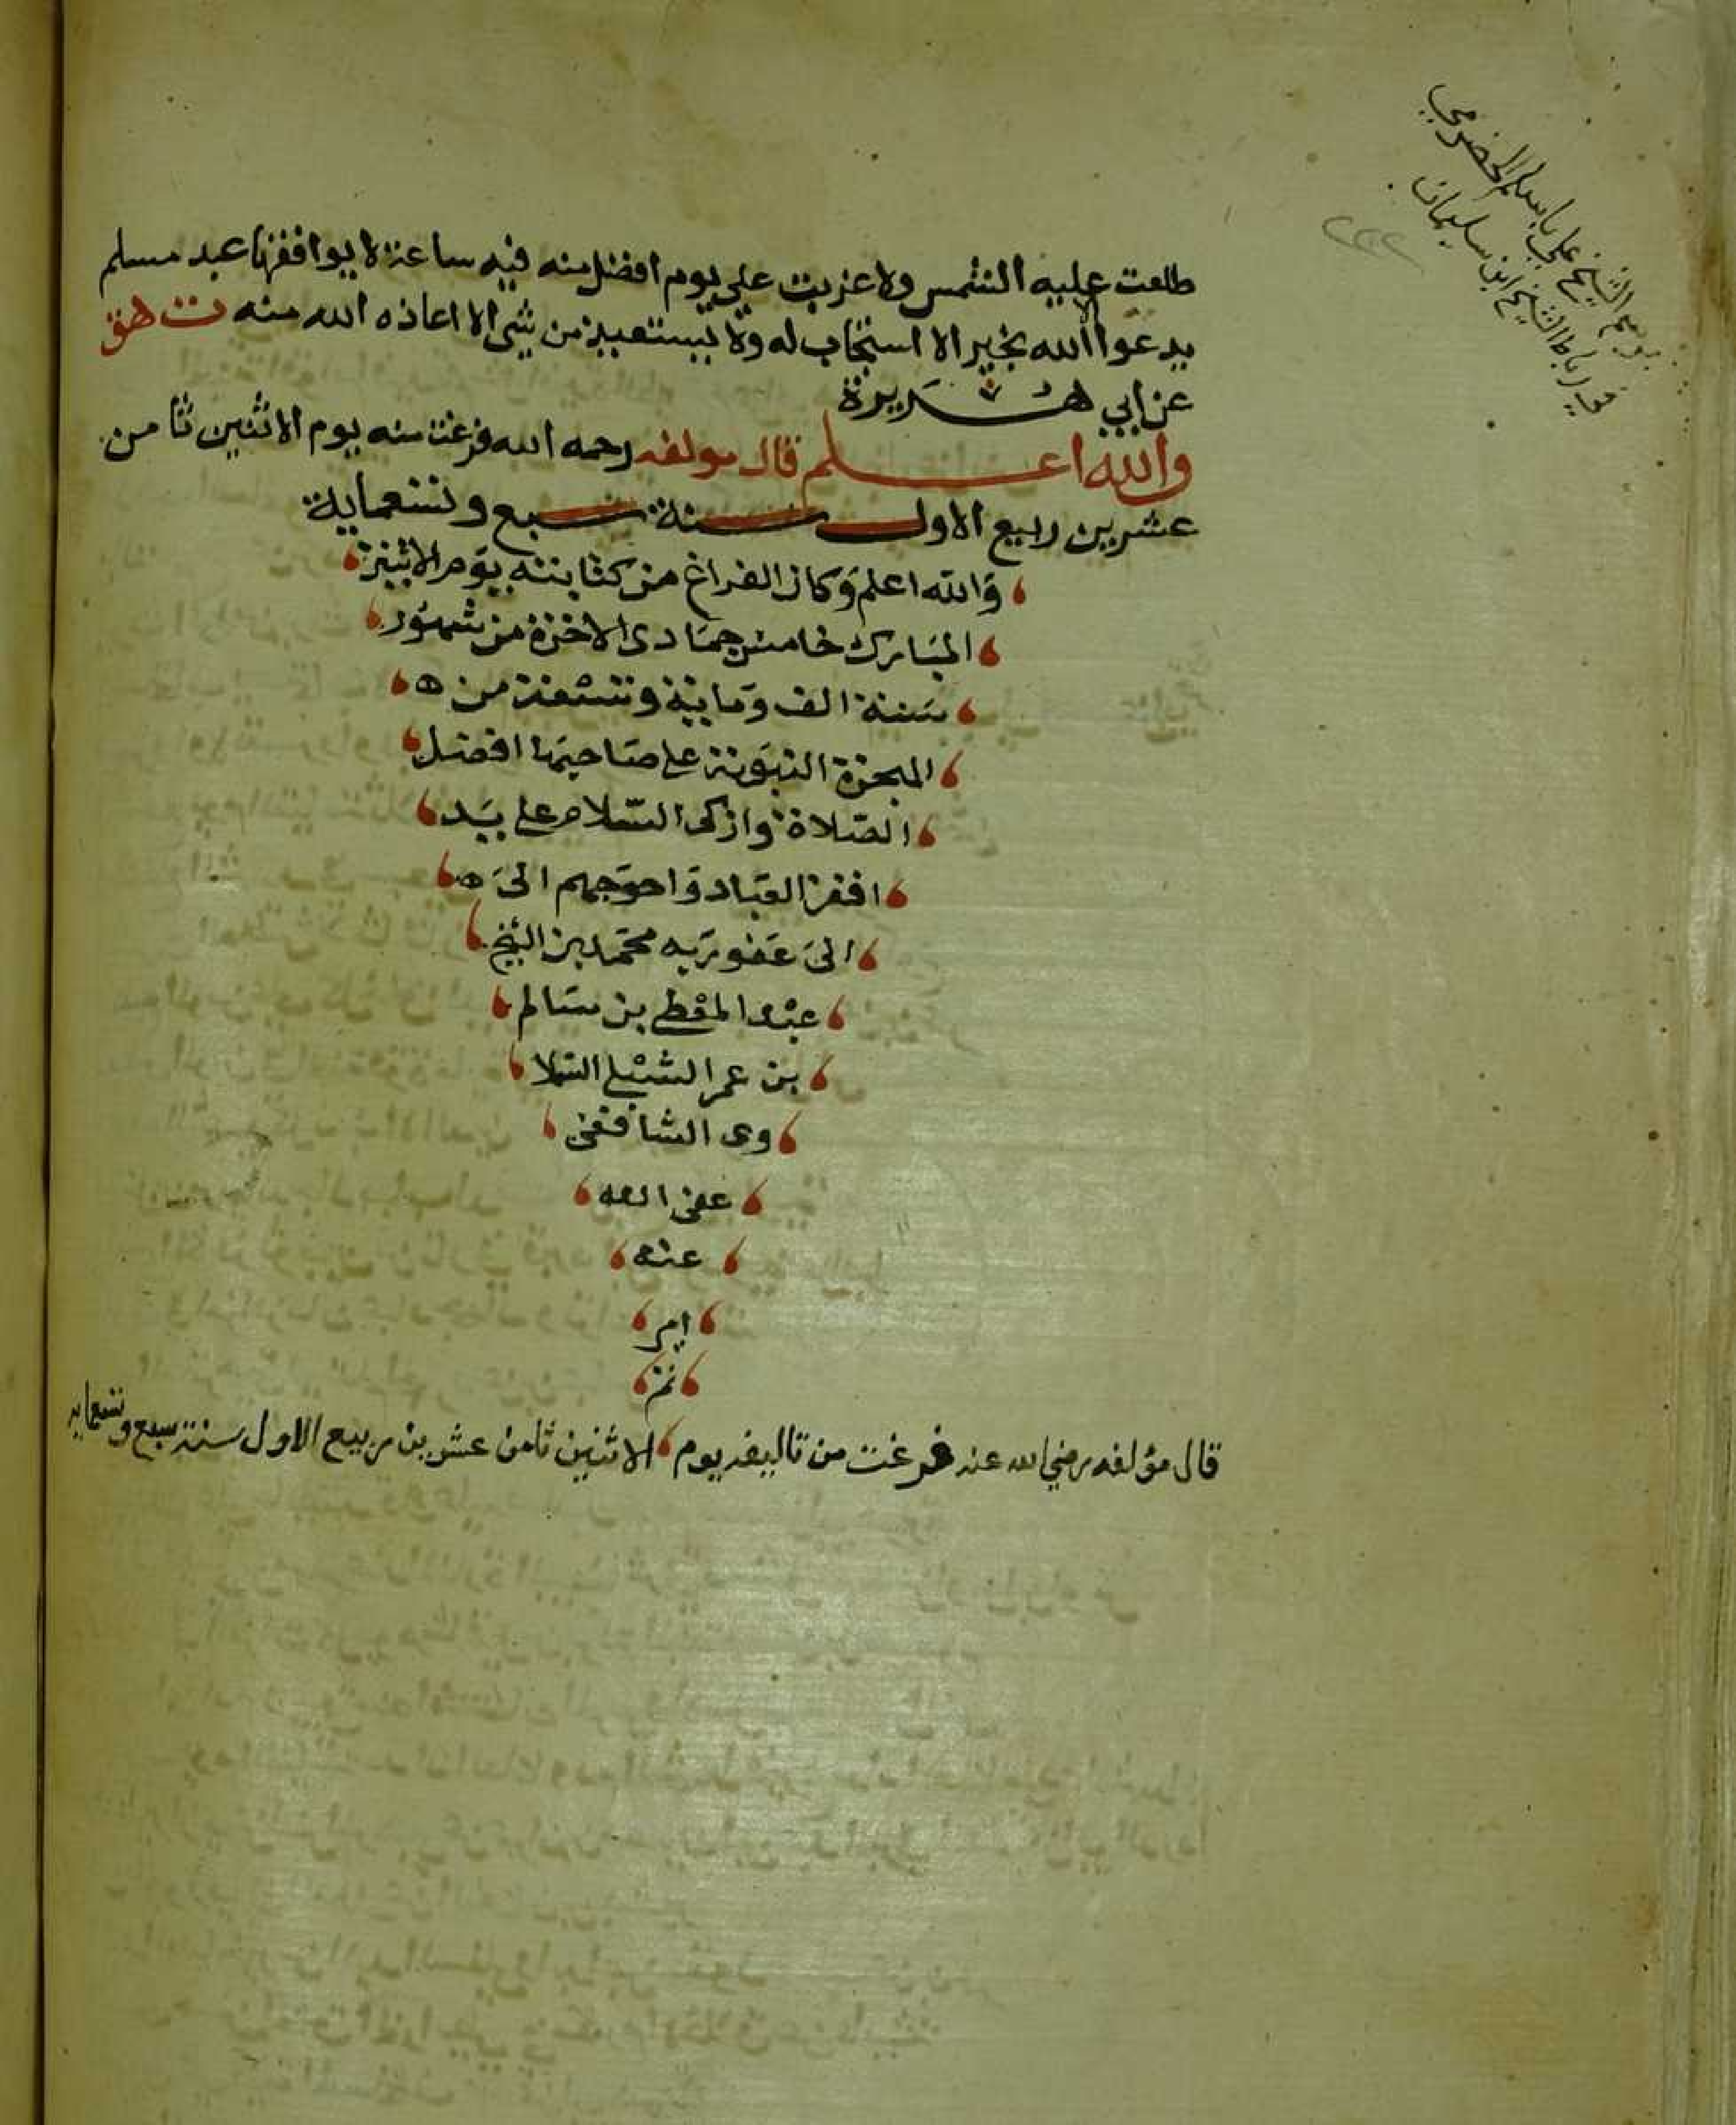 طلعت عليه الشمس ولا غربت علي يوم افضل منه فيه ساعة لا يوافقها عبد مسلم
يدعوا الله بخير الا استجاب له ولا يستعيذ من شي الا اعاذه الله منه ت هق
عن ابي هريرة
والله اعلم قال مولفه رحمه الله فرغت منه يوم الاثنين ثامن
عشرين ربيع الاول سنة سبع وتسعماية
والله اعلم وكان الفراغ من كتابته يوم الاثنين
المبارك خامس جمادى الاخرة من شهور
سنة الف وماية وتسعة من ه
الهجرة النبوية على صاحبها افضل
الصلاة وازكى السلام على يد
افقر العباد واحوجهم الى ه
الى عفو ربه محمد بن الشيخ
عبد المعطي بن سالم
بن عمر الشبلي السملا
وى الشافعى
عفى الله
عنه
امر
تم
قال مؤلفه رضي الله عنه فرغت من تاليفه يوم الاثنين ثامن عشرين ربيع الاول سنة سبع وتسعمايه
الشيخ علي باسلم الحضرمي
الشيخ ابن سليمان